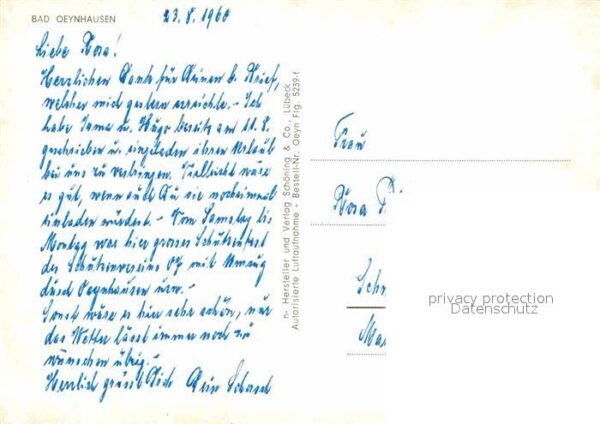 BAD OEYNHAUSEN
23.8.1960
Liebe Rosa!
Herzlichen Dank für Deinen b. Brief,
welcher mich gestern erreichte. - Ich
habe Irma u. Hugo bereits am 10.8.
geschrieben u. eingeladen ihren Urlaub
bei uns zu verbringen. Vielleicht wäre
es gut, wenn auch Du sie nocheinmal
einladen würdest. - Vom Samstag bis
Montag war hier grosses Schützenfest
des Schützenvereins mit Umzug
durch Oeynhausen usw. -
Sonst wäre es hier sehr schön, nur
das Wetter lässt immer noch zu
wünschen übrig. -
Herzlich grüsst Dich Dein
n- Hersteller und Verlag Schöning & Co., Lübeck
Autorisierte Luftaufnahme - Bestell-Nr. Oeyn Flg. 5239-f
Frau
Rosa
Sch
Ma
privacy protection
Datenschutz